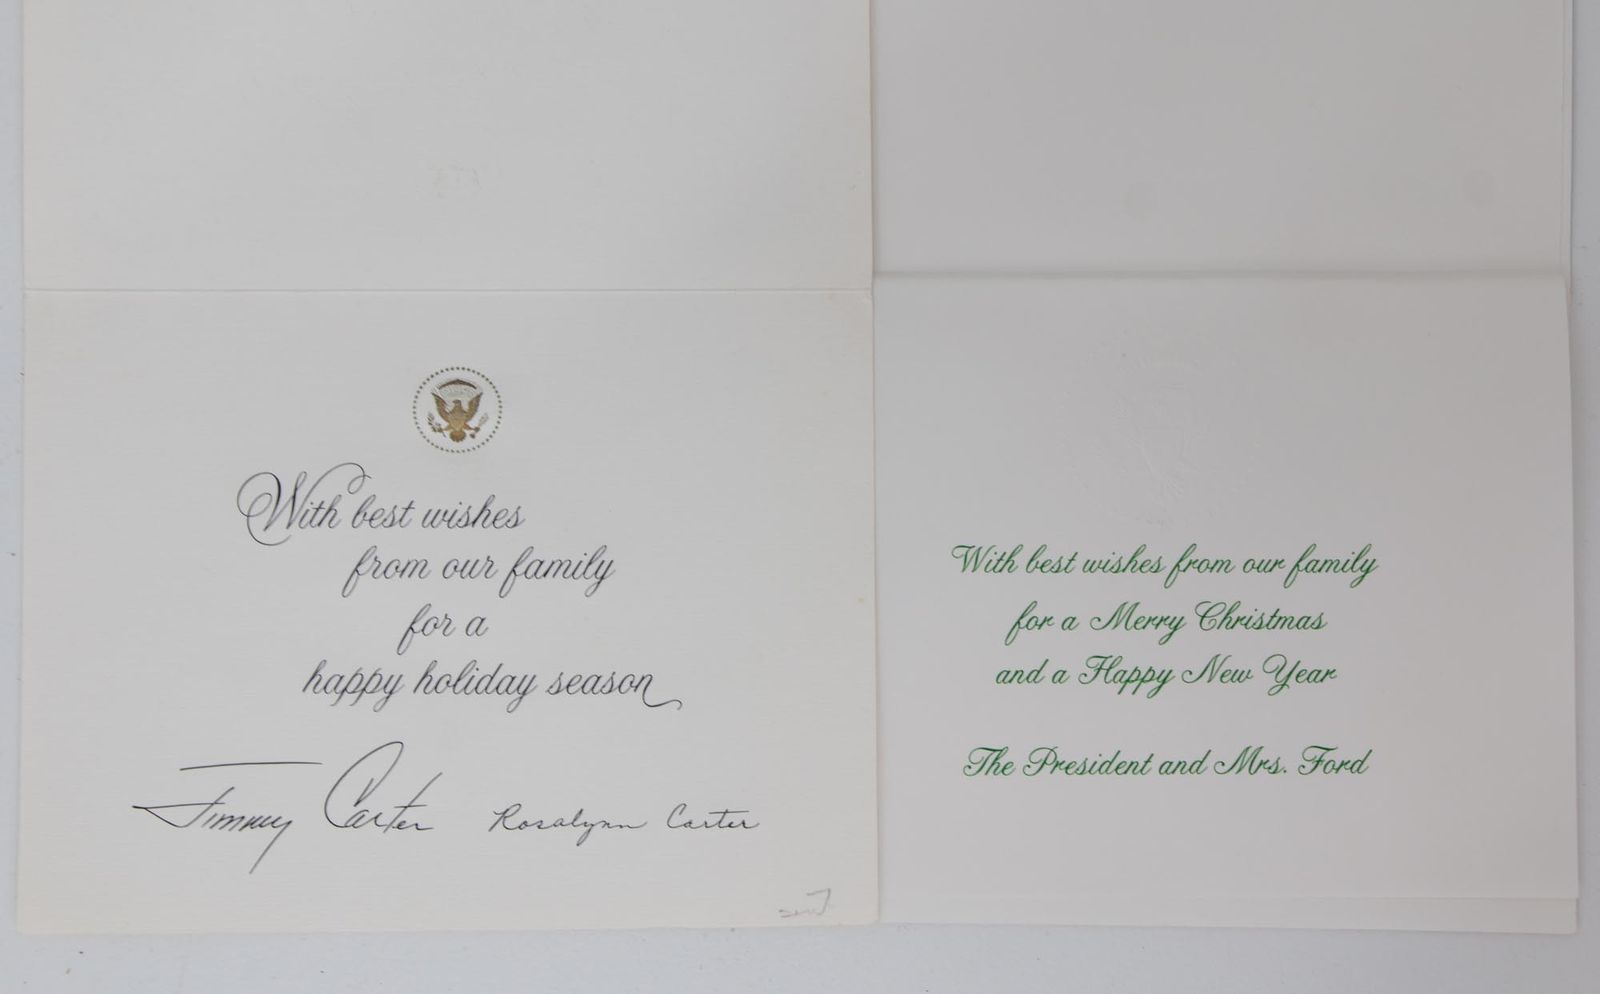 With best wishes
from our family
for a
happy holiday season
Jimmy Carter Rosalynn Carter
With best wishes from our family
for a Merry Christmas
and a Happy New Year
The President and Mrs. Ford